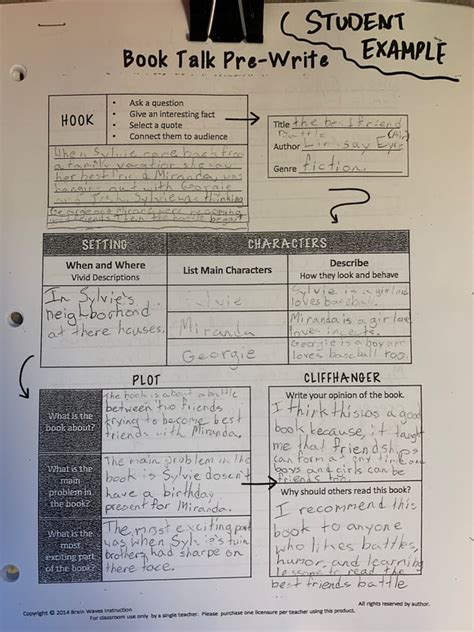 STUDENT
EXAMPLE
Book Talk Pre-Write
HOOK
• Ask a question
• Give an interesting fact
• Select a quote
• Connect them to audience
Title the best friend
Battle
Author Lindsay Eyre
Genre fiction.
When Sylvie came back from
a family vacation she saw
her best friend Miranda, was
hanging out with Georgie
SETTING
When and Where
Vivid Descriptions
In Sylvie's
neighborhood
at there houses.
CHARACTERS
List Main Characters
Describe
How they look and behave
Sylvie
Sylvie is a girl and
loves baseball.
Miranda
Miranda is a girl
loves insects.
Georgie
Georgie is a boy and
loves baseball too.
PLOT
What is the
book about?
The book is about a battle
between two friends
trying to become best
friends with Miranda.
What is the
main
problem in
the book?
The main problem in the
book is Sylvie doesn't
have a birthday
present for Miranda.
What is the
most
exciting part
of the book?
The most exciting part
was when Sylvie's twin
brothers had sharpe on
there face.
CLIFFHANGER
Write your opinion of the book.
I think this was a good
book because, it taught
me that friendships
can form at any time and
boys and girls can be
friends too.
Why should others read this book?
I recommend this
book to anyone
who likes battles,
humor, and learning
to read the
best friends battle
All rights reserved by author.
Copyright © 2014 Brain Waves Instruction
For classroom use only by a single teacher. Please purchase one licensure per teacher using this product.